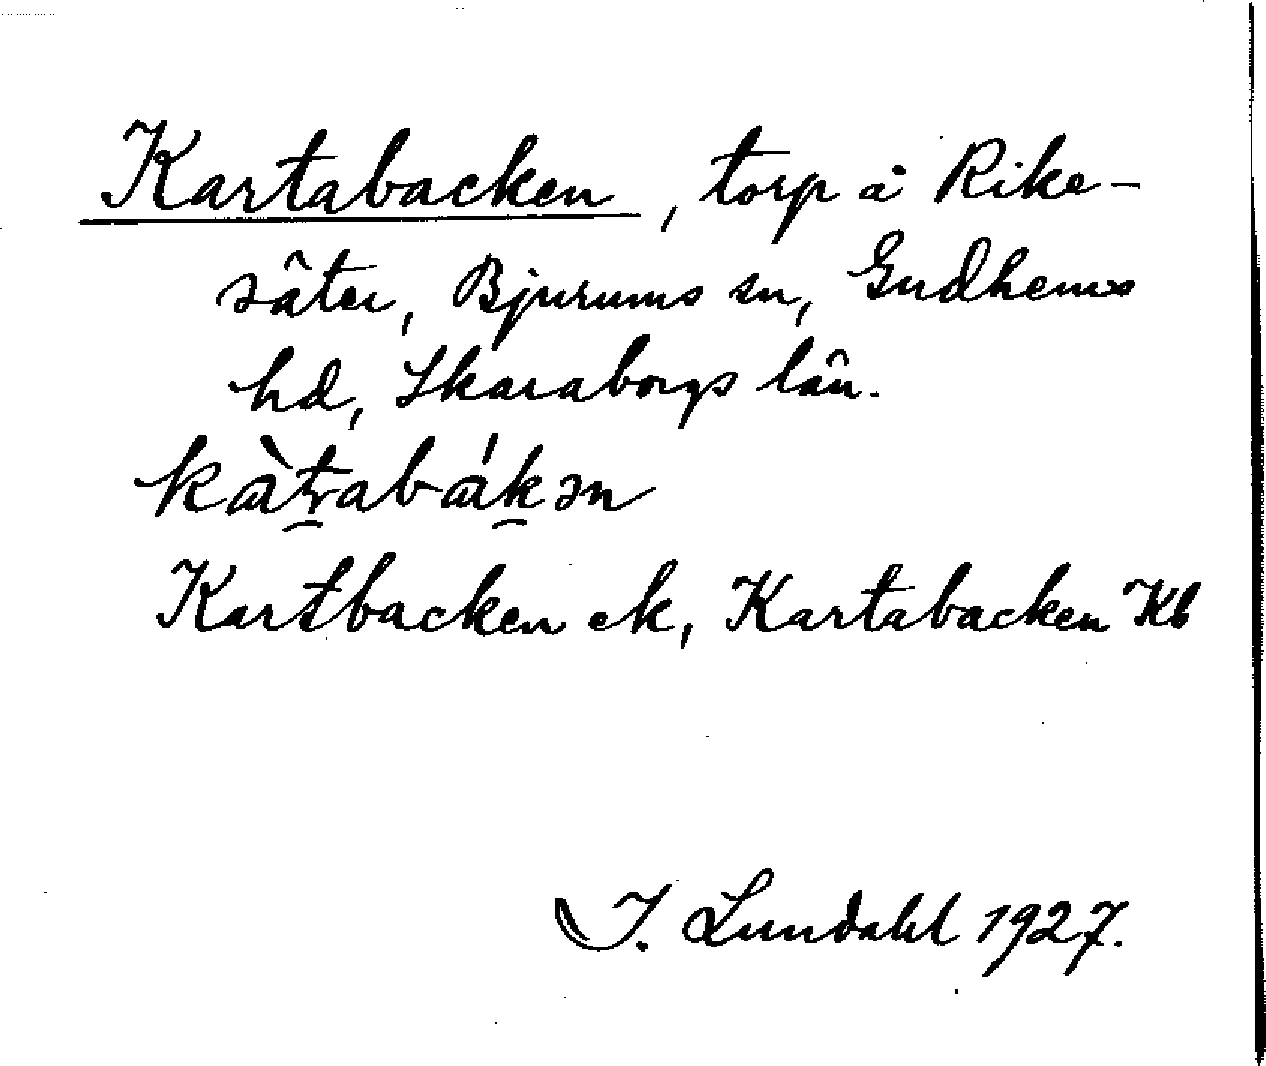 Kartabacken, torp å Rike-
säter, Bjurums sn, Gudhems
hd, Skaraborgs län.
kàṱabák̯ən
Kartbacken ek, Kartabacken Kb
I. Lundahl 1927.